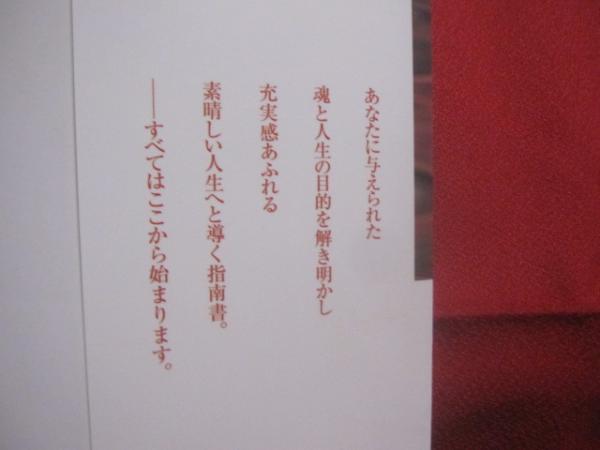 あなたに与えられた
魂と人生の目的を解き明かし
充実感あふれる
素晴しい人生へと導く指南書。
──すべてはここから始まります。